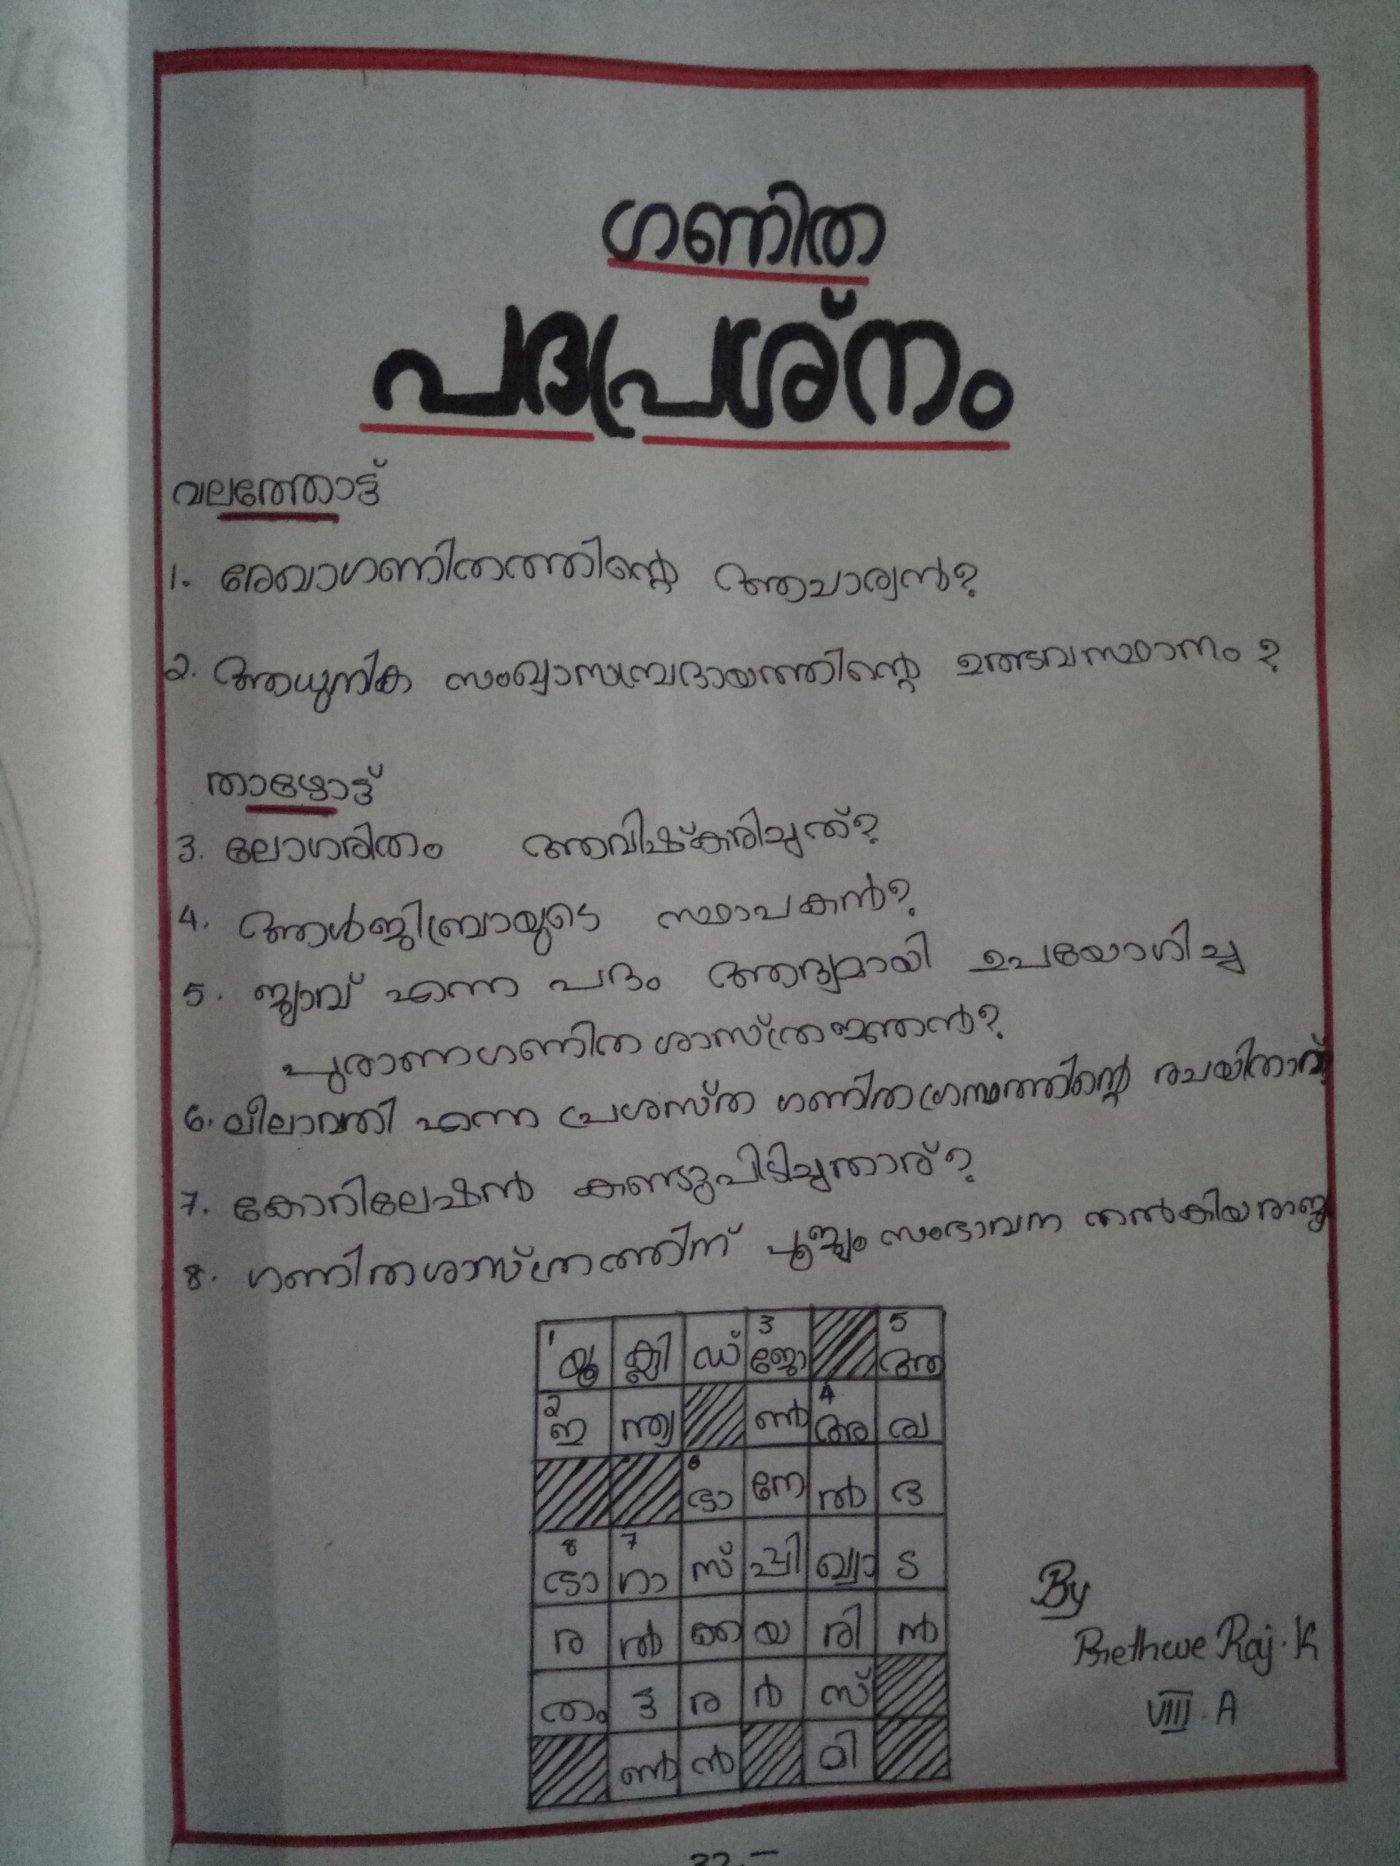 ഗണിത
പദപ്രശ്നം
വലത്തോട്ട്
1. രേഖാഗണിതത്തിന്റെ ആചാര്യൻ?
2. ആധുനിക സംഖ്യാസമ്പ്രദായത്തിന്റെ ഉത്ഭവസ്ഥാനം?
താഴോട്ട്
3. ലോഗരിതം ആവിഷ്കരിച്ചത്?
4. ആൾജിബ്രായുടെ സ്ഥാപകൻ?
5. ജ്യാവ് എന്ന പദം ആദ്യമായി ഉപയോഗിച്ച
പുരാണഗണിത ശാസ്ത്രജ്ഞൻ?
6. ലീലാവതി എന്ന പ്രശസ്ത ഗണിതഗ്രന്ഥത്തിന്റെ രചയിതാവ്
7. കോറിലേഷൻ കണ്ടുപിടിച്ചതാര്?
8. ഗണിതശാസ്ത്രത്തിന് പൂജ്യം സംഭാവന നൽകിയ രാജ്യ
1 യൂ ക്ലി ഡ് 3 ജോ 5 ആ
2 ഇ ന്ത്യ ൺ 4 അ ര്യ
6 ഭാ നേ ൽ ഭ
8 ഭാ 7 ഗാ സ് പ്പി ഖ്വാ ട
ര ൽ ക്ക യ രി ൻ
തം ട്ട ര ർ സ്
ൺ ൻ മി
By
Prethwe Raj. K
VIII. A
32.-